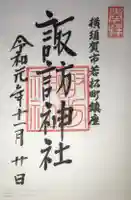 横須賀市若松町鎮座
諏訪神社
令和元年十一月廿日